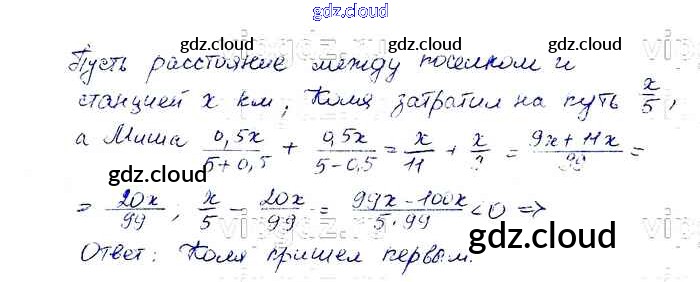 gdz.cloud
gdz.cloud gdz.cloud
Пусть расстояние между поселком и
станцией x км, Коля затратил на путь x/5,
а Миша 0,5x/(5+0,5) + 0,5x/(5-0,5) = x/11 + x/9 = (9x+11x)/99 =
= 20x/99; x/5 - 20x/99 = (99x-100x)/(5·99) < 0 =>
Ответ: Коля пришел первым.
gdz.cloud gdz.cloud
gdz.cloud